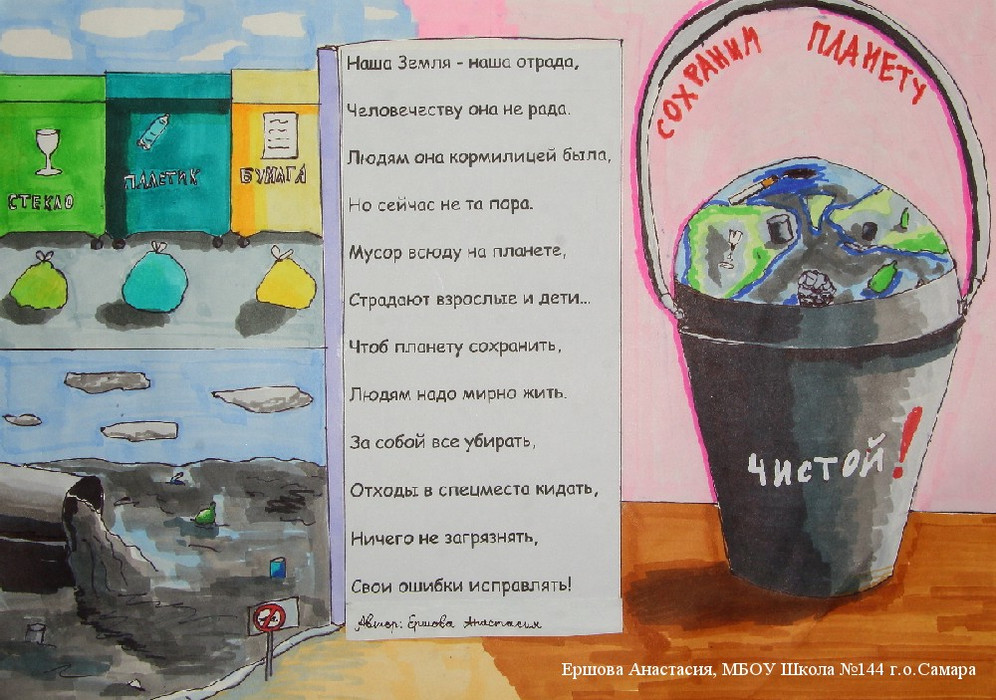 СОХРАНИМ ПЛАНЕТУ
СТЕКЛО
ПЛАСТИК
БУМАГА
Наша Земля - наша отрада,
Человечеству она не рада.
Людям она кормилицей была,
Но сейчас не та пора.
Мусор всюду на планете,
Страдают взрослые и дети...
Чтоб планету сохранить,
Людям надо мирно жить.
За собой все убирать,
Отходы в спецместа кидать,
Ничего не загрязнять,
Свои ошибки исправлять!
Автор: Ершова Анастасия
ЧИСТОЙ!
Ершова Анастасия, МБОУ Школа №144 г.о.Самара